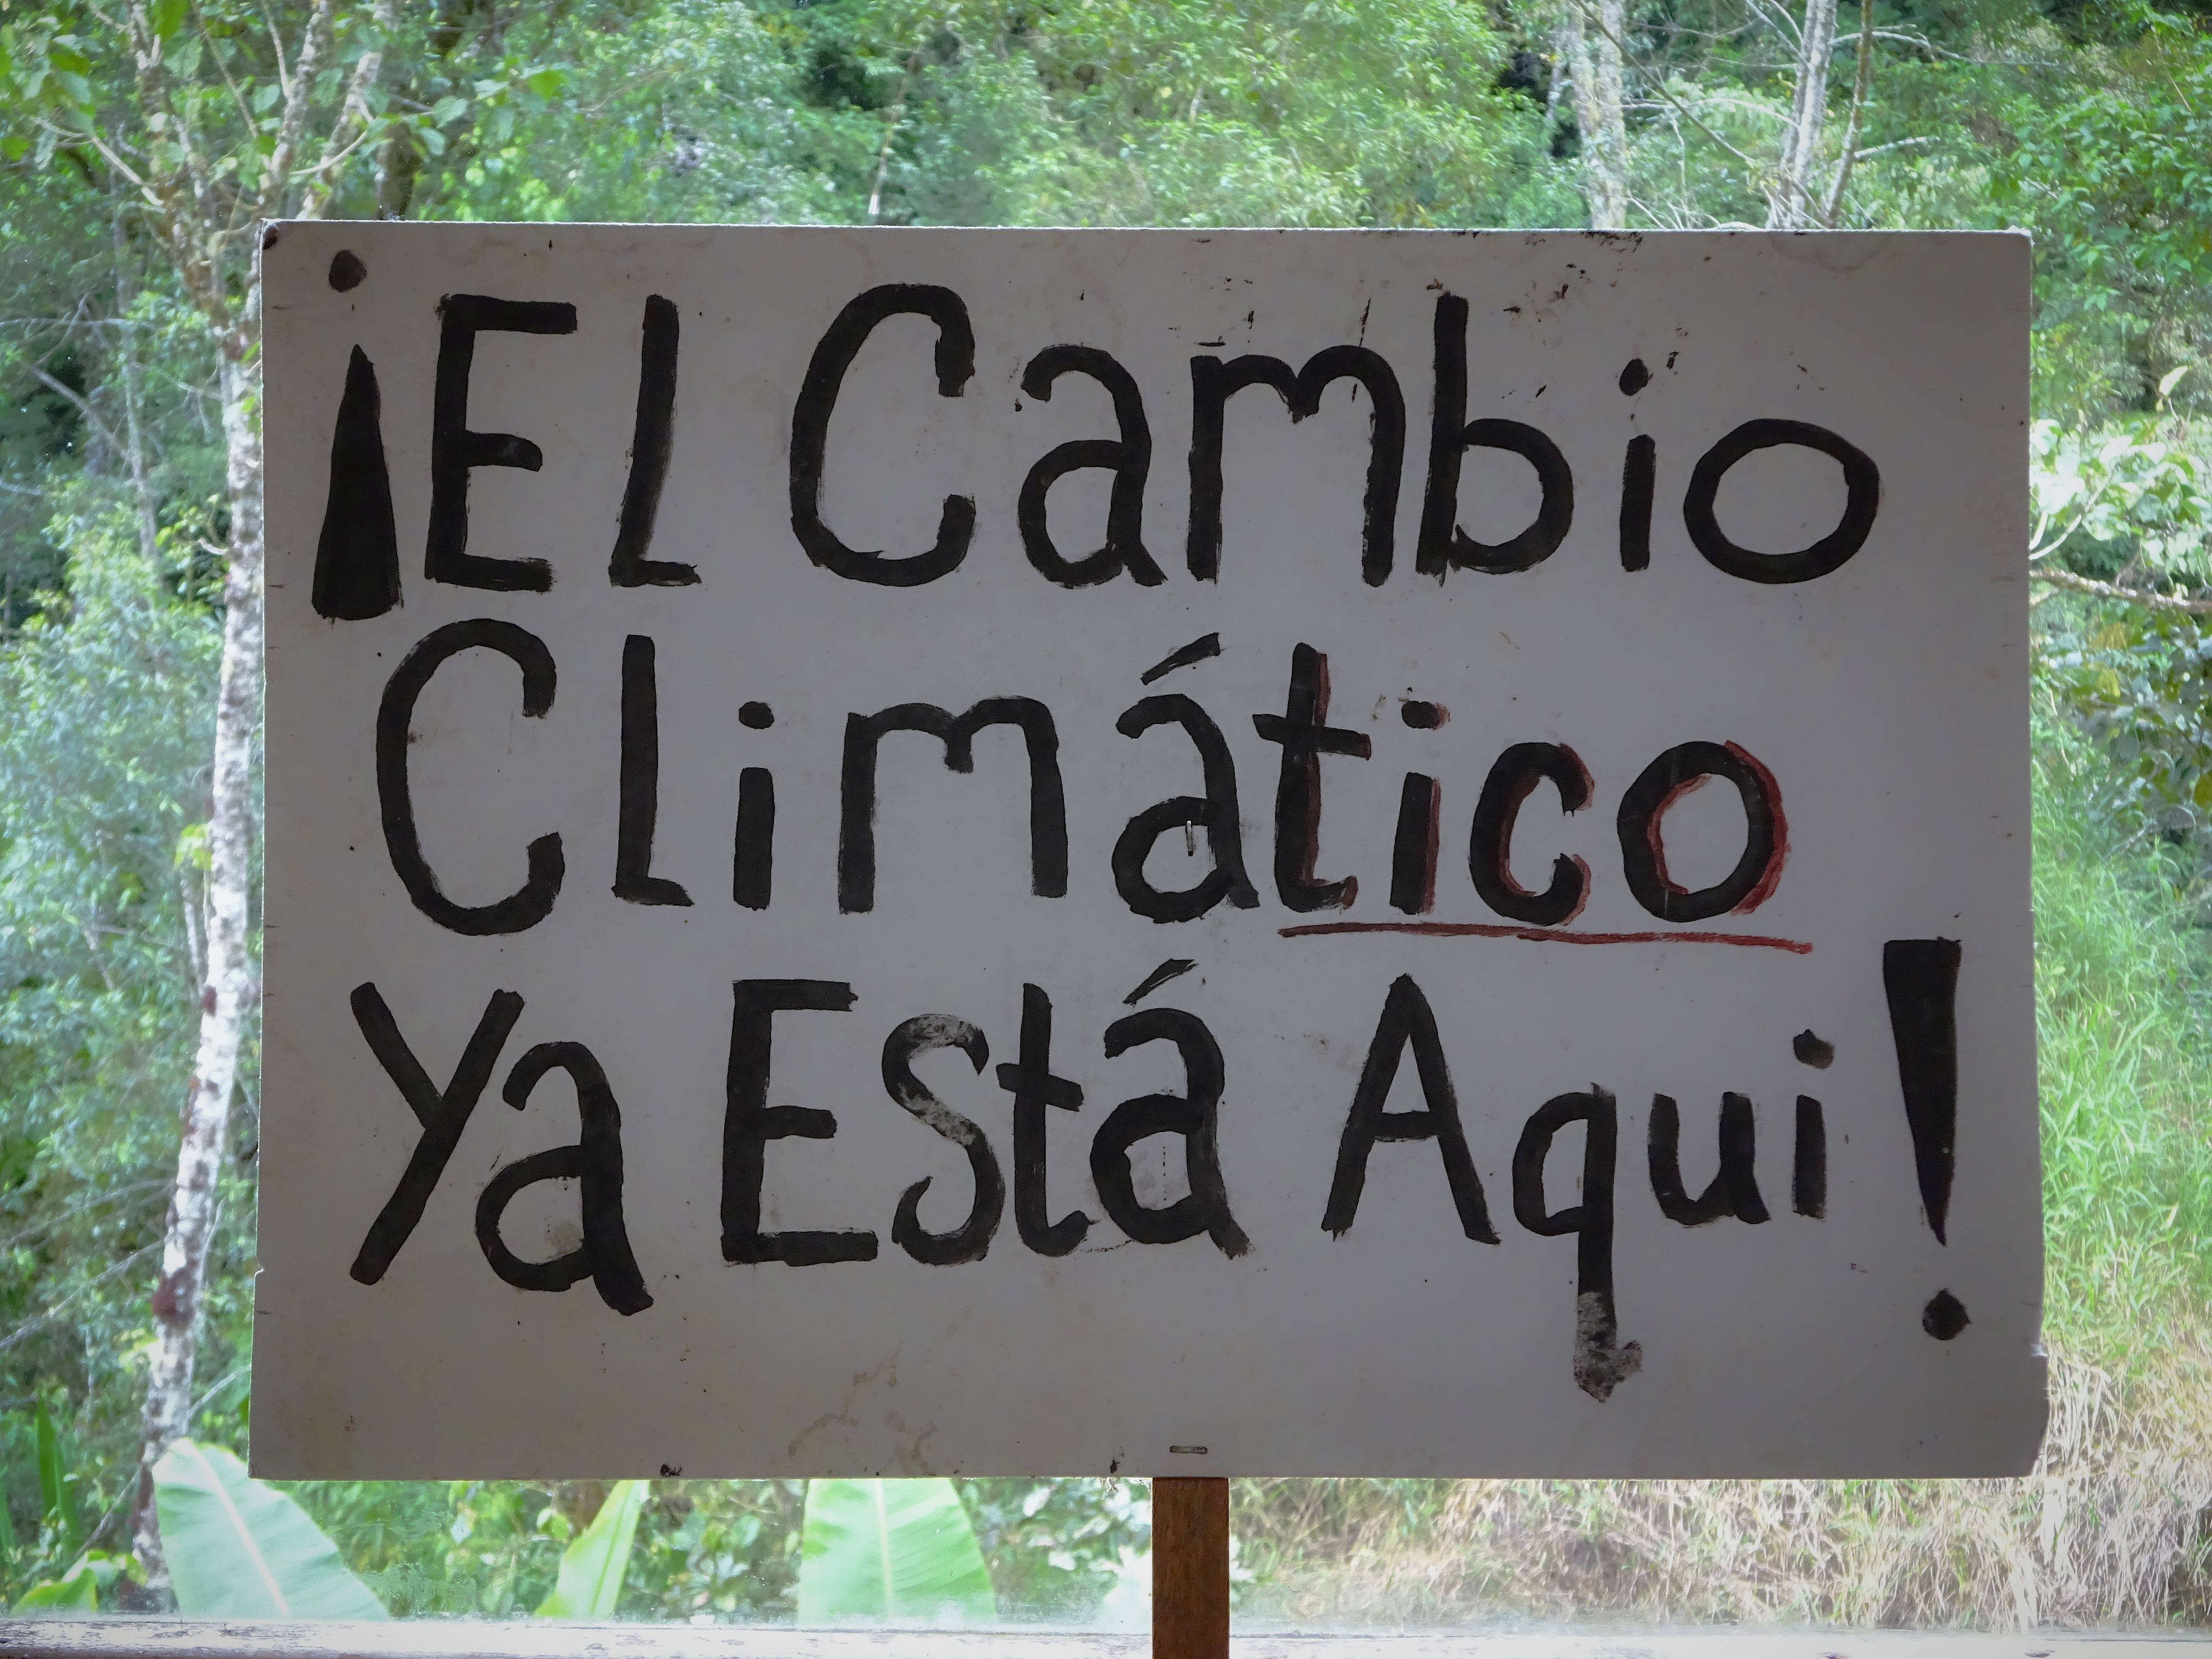 ¡El Cambio
Climático
Ya Está Aqui!